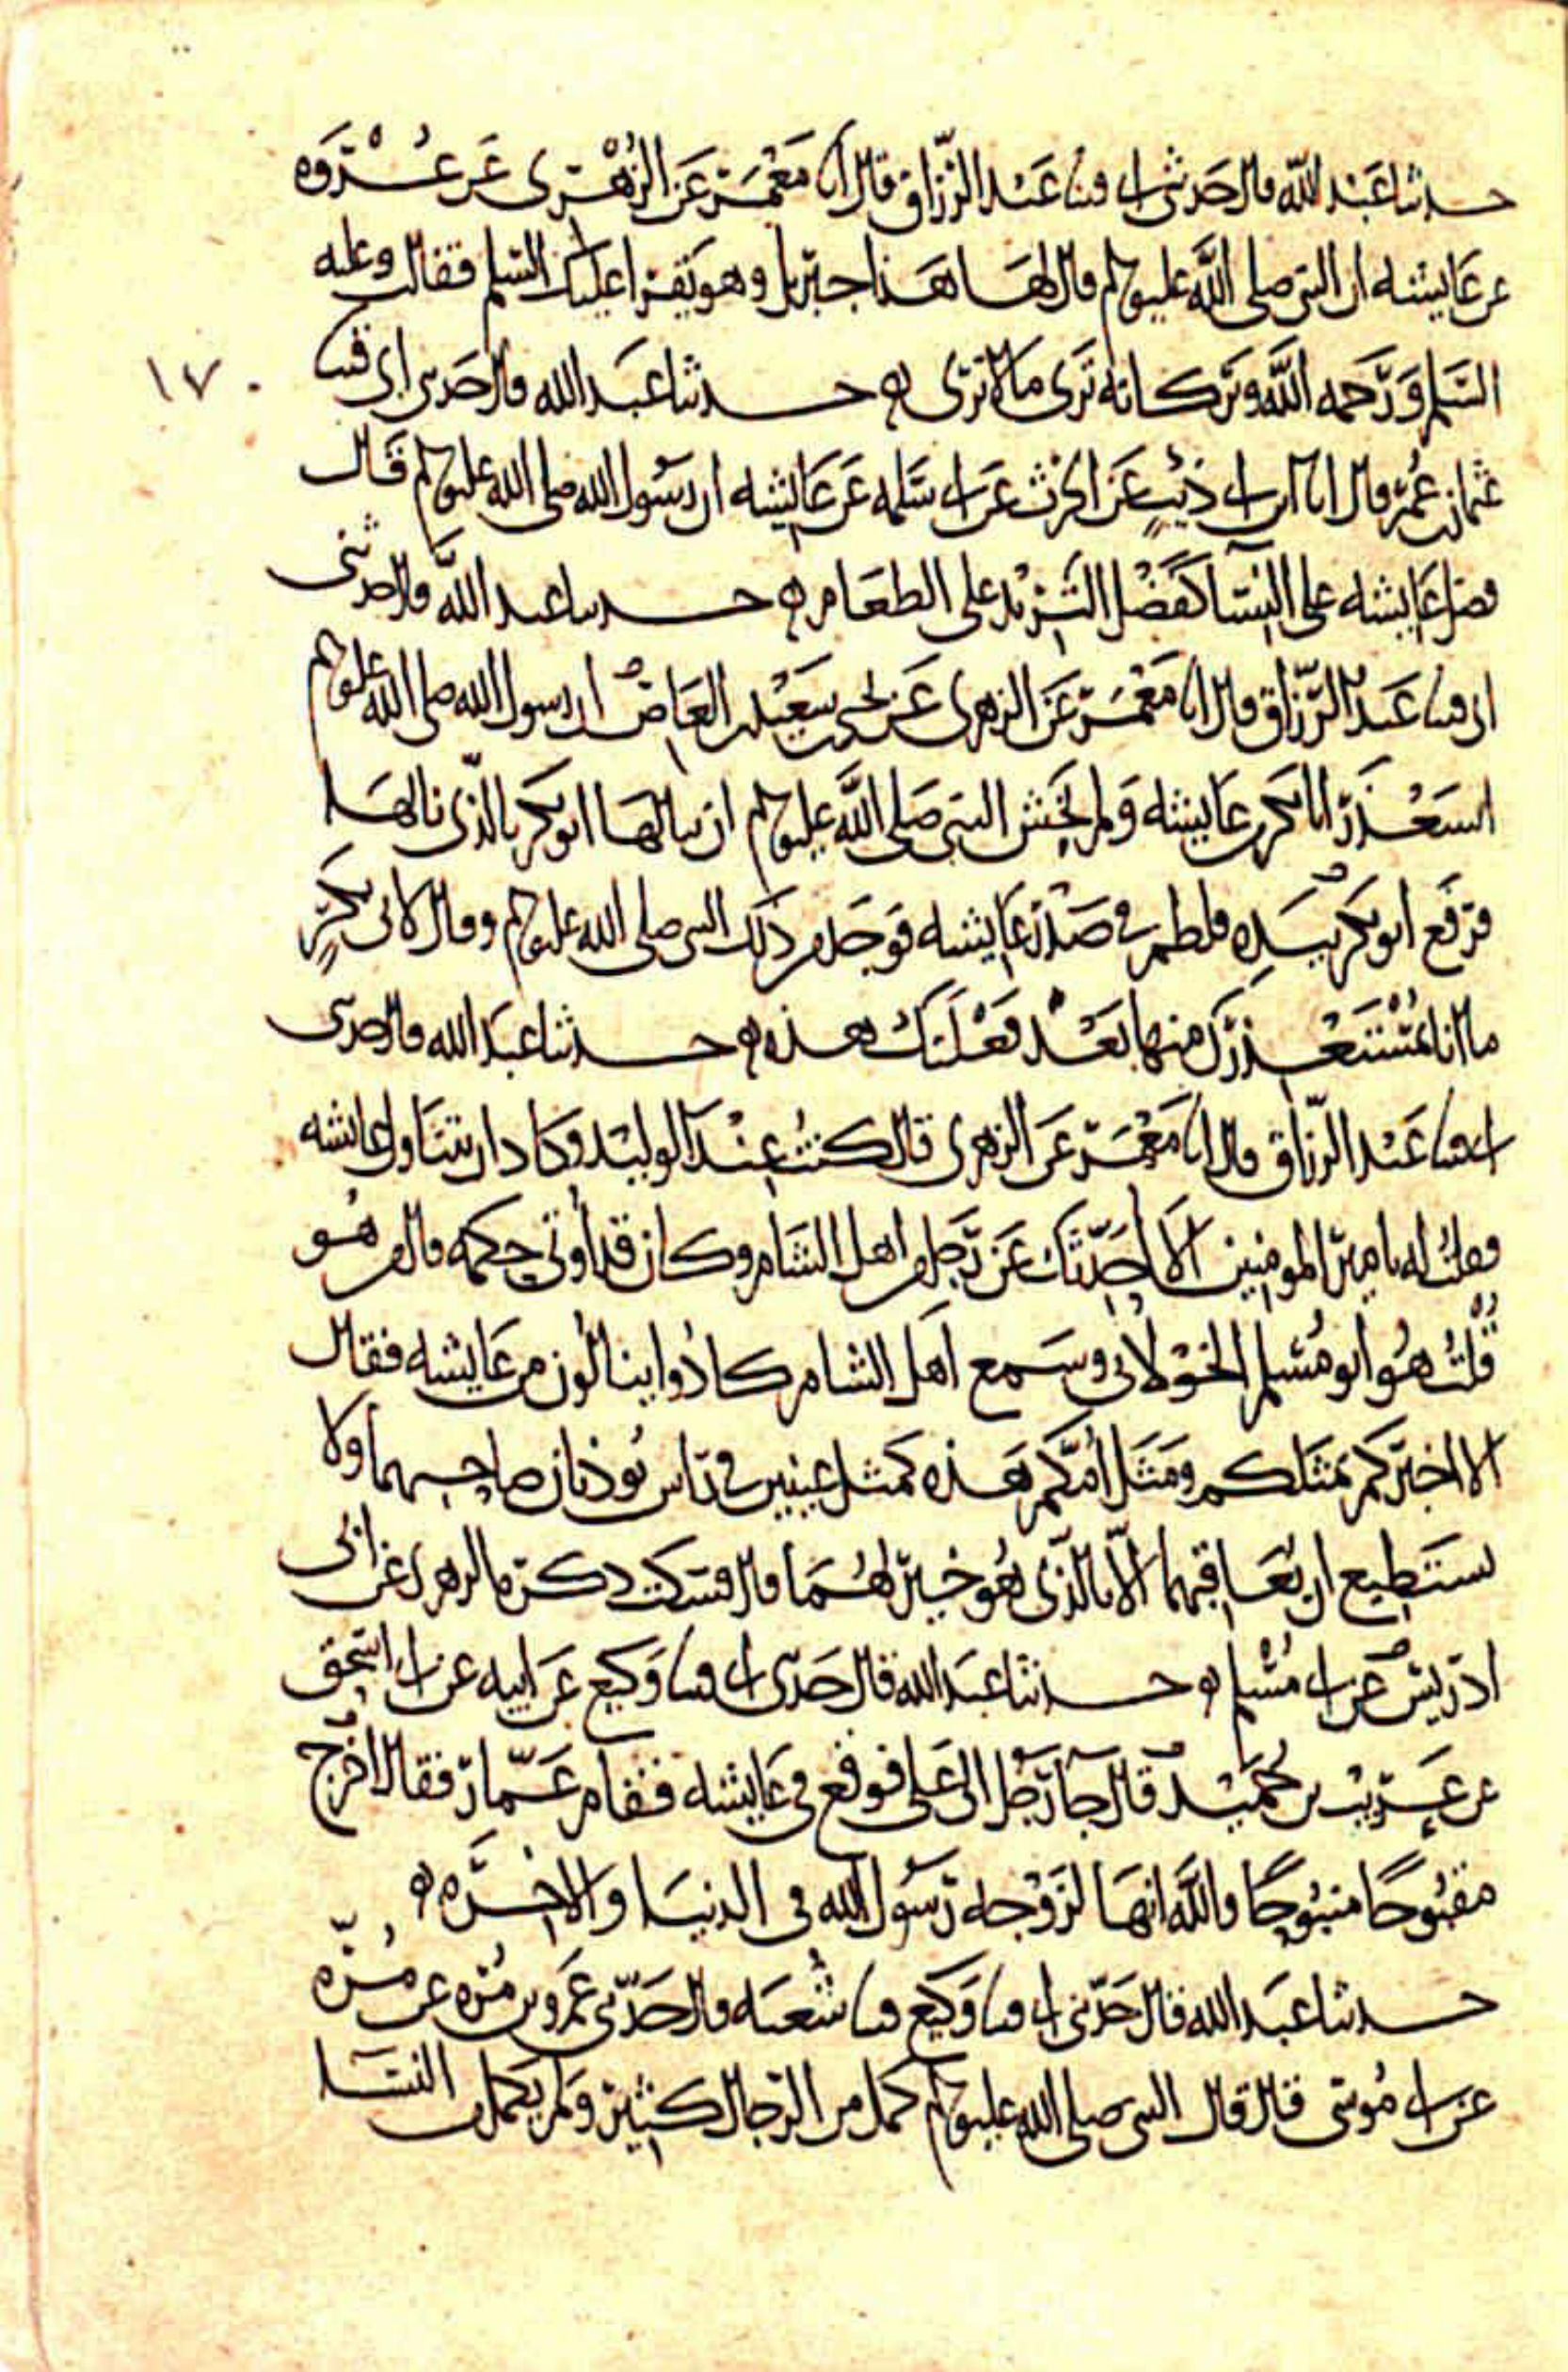 حدثنا عبد الله قال حدثني ابي قثنا عبد الرزاق قال انا معمر عن الزهري عن عروه
عن عايشه ان النبي صلى الله عليه وسلم قال لها هذا جبريل وهو يقرا عليك السلم فقالت وعليه
السلم ورحمه الله وبركاته ترى ما لا نرى ه حدثنا عبد الله قال حدثني ابي قثنا
١٧٠
عثمان بن عمر قال انا ابن ابي ذيب عن الحرث عن ابي سلمه عن عايشه ان رسول الله صلى الله عليه وسلم قال
فضل عايشه على النسا كفضل الثريد على الطعام ه حدثنا عبد الله قال حدثني
ابي قثنا عبد الرزاق قال انا معمر عن الزهري عن يحيى بن سعيد بن العاص ان رسول الله صلى الله عليه وسلم
استعذر ابا بكر من عايشه ولم يخش النبي صلى الله عليه وسلم ان ينالها ابو بكر بالذي نالها
فرفع ابو بكر بيده فلطم في صدر عايشه فوجد من ذلك النبي صلى الله عليه وسلم وقال لابي بكر
ما انا بمستعذرك منها بعد فعلتك هذه ه حدثنا عبد الله قال حدثني
ابي قثنا عبد الرزاق قال انا معمر عن الزهري قال كنت عند الوليد وكاد ان يتناول عايشه
فقلت له يا امير المومنين الا احدثك عن رجل من اهل الشام وكان قد اوتي حكمه قال من هو
قلت هو ابو مسلم الخولاني وسمع اهل الشام كادوا ينالون من عايشه فقال
الا اخبركم بمثلكم ومثل امكم هذه كمثل عينين في راس توذيان صاحبهما ولا
يستطيع ان يعاقبهما الا بالذي هو خير لهما قال فسكت ذكره الزهري عن ابي
ادريس عن ابي مسلم ه حدثنا عبد الله قال حدثني ابي قثنا وكيع عن ابيه عن ابي اسحق
عن عريب بن حميد قال جا رجل الى علي فوقع في عايشه فقام عمار فقال اخرج
مقبوحا منبوحا والله انها لزوجه رسول الله في الدنيا والاخره ه
حدثنا عبد الله قال حدثني ابي قثنا وكيع قثنا شعبه قال حدثني عمرو بن مره عن مره
عن ابي موسى قال قال النبي صلى الله عليه وسلم كمل من الرجال كثير ولم يكمل من النسا